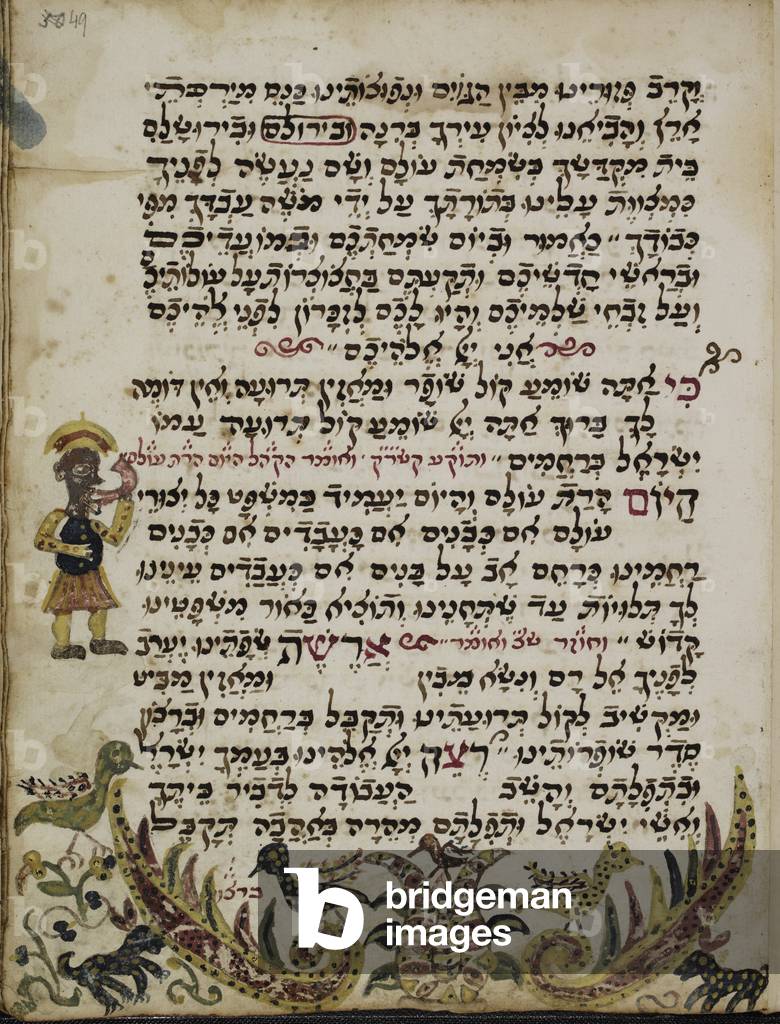 49
וְקָרֵב פְּזוּרֵינוּ מִבֵּין הַגּוֹיִם וּנְפוּצוֹתֵינוּ כַּנֵּס מִיַּרְכְּתֵי
אָרֶץ וַהֲבִיאֵנוּ לְצִיּוֹן עִירְךָ בְּרִנָּה וּבִירוּשָׁלַיִם
בֵּית מִקְדָּשְׁךָ בְּשִׂמְחַת עוֹלָם וְשָׁם נַעֲשֶׂה לְפָנֶיךָ
כְּמִצְוַת עָלֵינוּ בְּתוֹרָתֶךָ עַל יְדֵי מֹשֶׁה עַבְדָּךְ מִפִּי
כְבוֹדָךְ כָּאָמוּר וּבְיוֹם שִׂמְחַתְכֶם וּבְמוֹעֲדֵיכֶם
וּבְרָאשֵׁי חָדְשֵׁיכֶם וּתְקַעְתֶּם בַּחֲצוֹצְרוֹת עַל עוֹלוֹתֵיכֶם
וְעַל זִבְחֵי שַׁלְמֵיכֶם וְהָיוּ לָכֶם לְזִכָּרוֹן לִפְנֵי אֱלֹהֵיכֶם
אֲנִי אֱלֹהֵיכֶם
כִּי אַתָּה שׁוֹמֵעַ קוֹל שׁוֹפָר וּמַאֲזִין תְּרוּעָה וְאֵין דּוֹמֶה
לָךְ בָּרוּךְ אַתָּה שׁוֹמֵעַ קוֹל תְּרוּעַת עַמּוֹ
יִשְׂרָאֵל בְּרַחֲמִים ותוקע קשר״ק ואומר הקהל היום הרת עולם
הַיּוֹם הֲרַת עוֹלָם וְהַיּוֹם יַעֲמִיד בַּמִּשְׁפָּט כָּל יְצוּרֵי
עוֹלָם אִם כְּבָנִים אִם כַּעֲבָדִים אִם כְּבָנִים
רַחֲמֵינוּ כְּרַחֵם אָב עַל בָּנִים אִם כַּעֲבָדִים עֵינֵינוּ
לְךָ תְלוּיוֹת עַד שֶׁתְּחָנֵּנוּ וְתוֹצִיא כָאוֹר מִשְׁפָּטֵינוּ
קָדוֹשׁ וחוזר ש״צ ואומר אֲרֶשֶׁת שְׂפָתֵינוּ יֶעֱרַב
לְפָנֶיךָ אֵל רָם וְנִשָּׂא מֵבִין וּמַאֲזִין מַבִּיט
וּמַקְשִׁיב לְקוֹל תְּרוּעָתֵינוּ וּתְקַבֵּל בְּרַחֲמִים וּבְרָצוֹן
סֵדֶר שׁוֹפְרוֹתֵינוּ רְצֵה אֱלֹהֵינוּ בְּעַמְּךָ יִשְׂרָאֵל
וּבִתְפִלָּתָם וְהָשֵׁב הָעֲבוֹדָה לִדְבִיר בֵּיתֶךָ
וְאִשֵּׁי יִשְׂרָאֵל וּתְפִלָּתָם מְהֵרָה בְּאַהֲבָה תְקַבֵּל
ברצון
b bridgeman
images